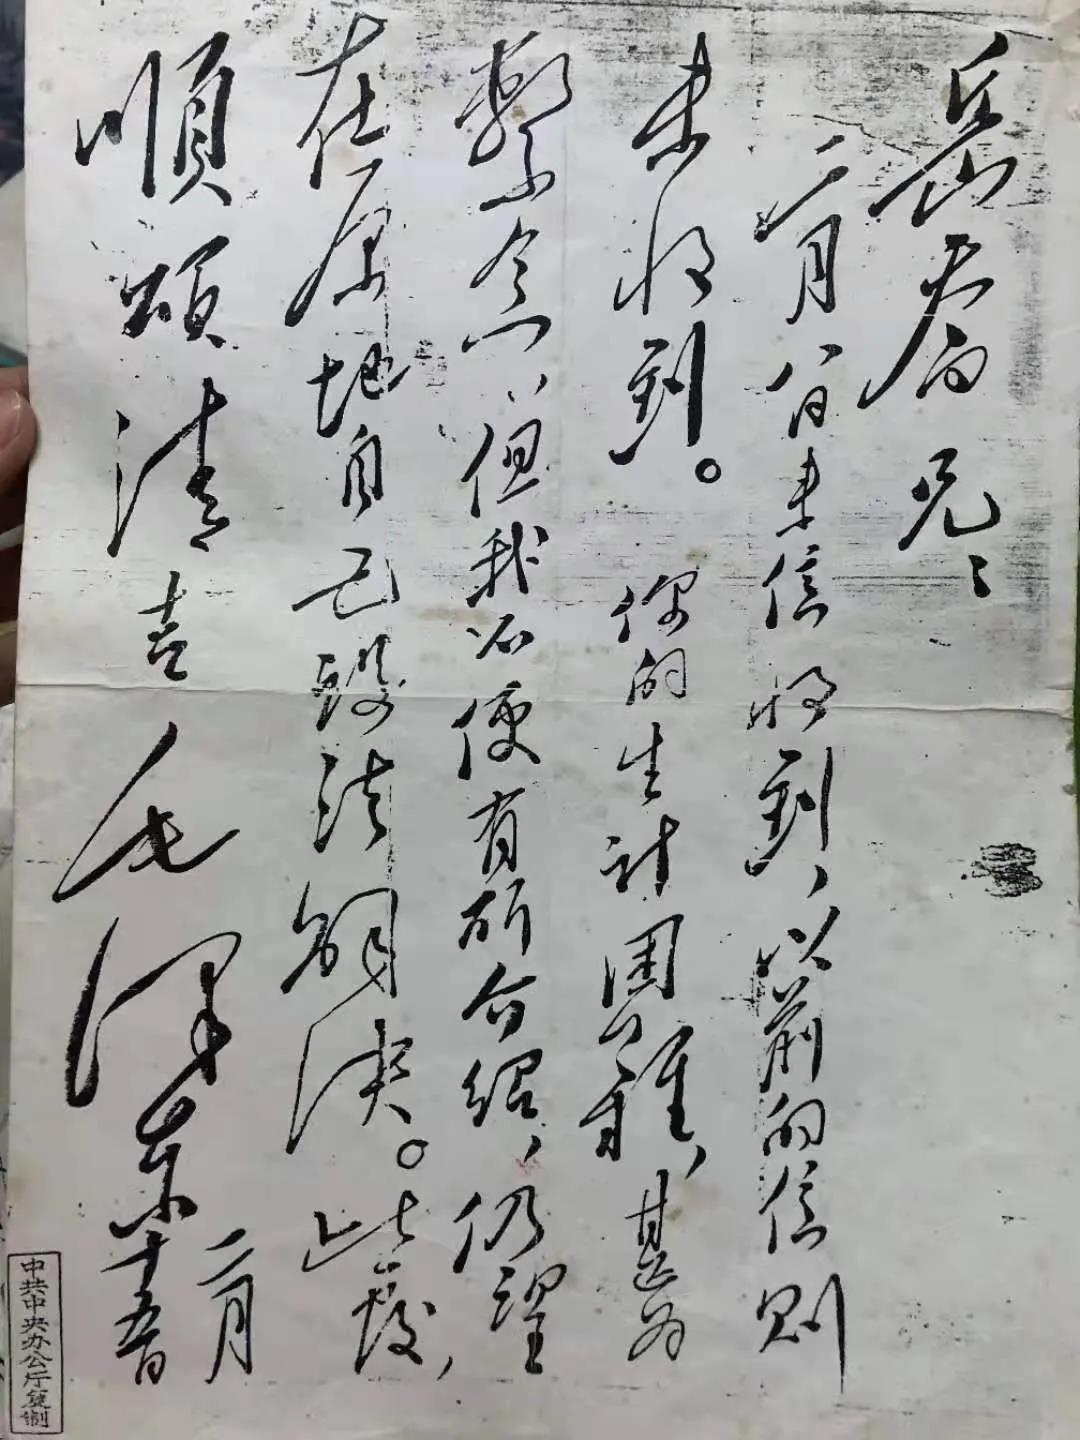 岳喬兄：
二月八日来信收到，以前的信則
未收到。你的生計困難，甚为
繫念，但我不便有所介紹，仍望
在原地自己設法解決。此復，
順頌清吉 毛澤东
二月
十五日
中共中央办公厅复制